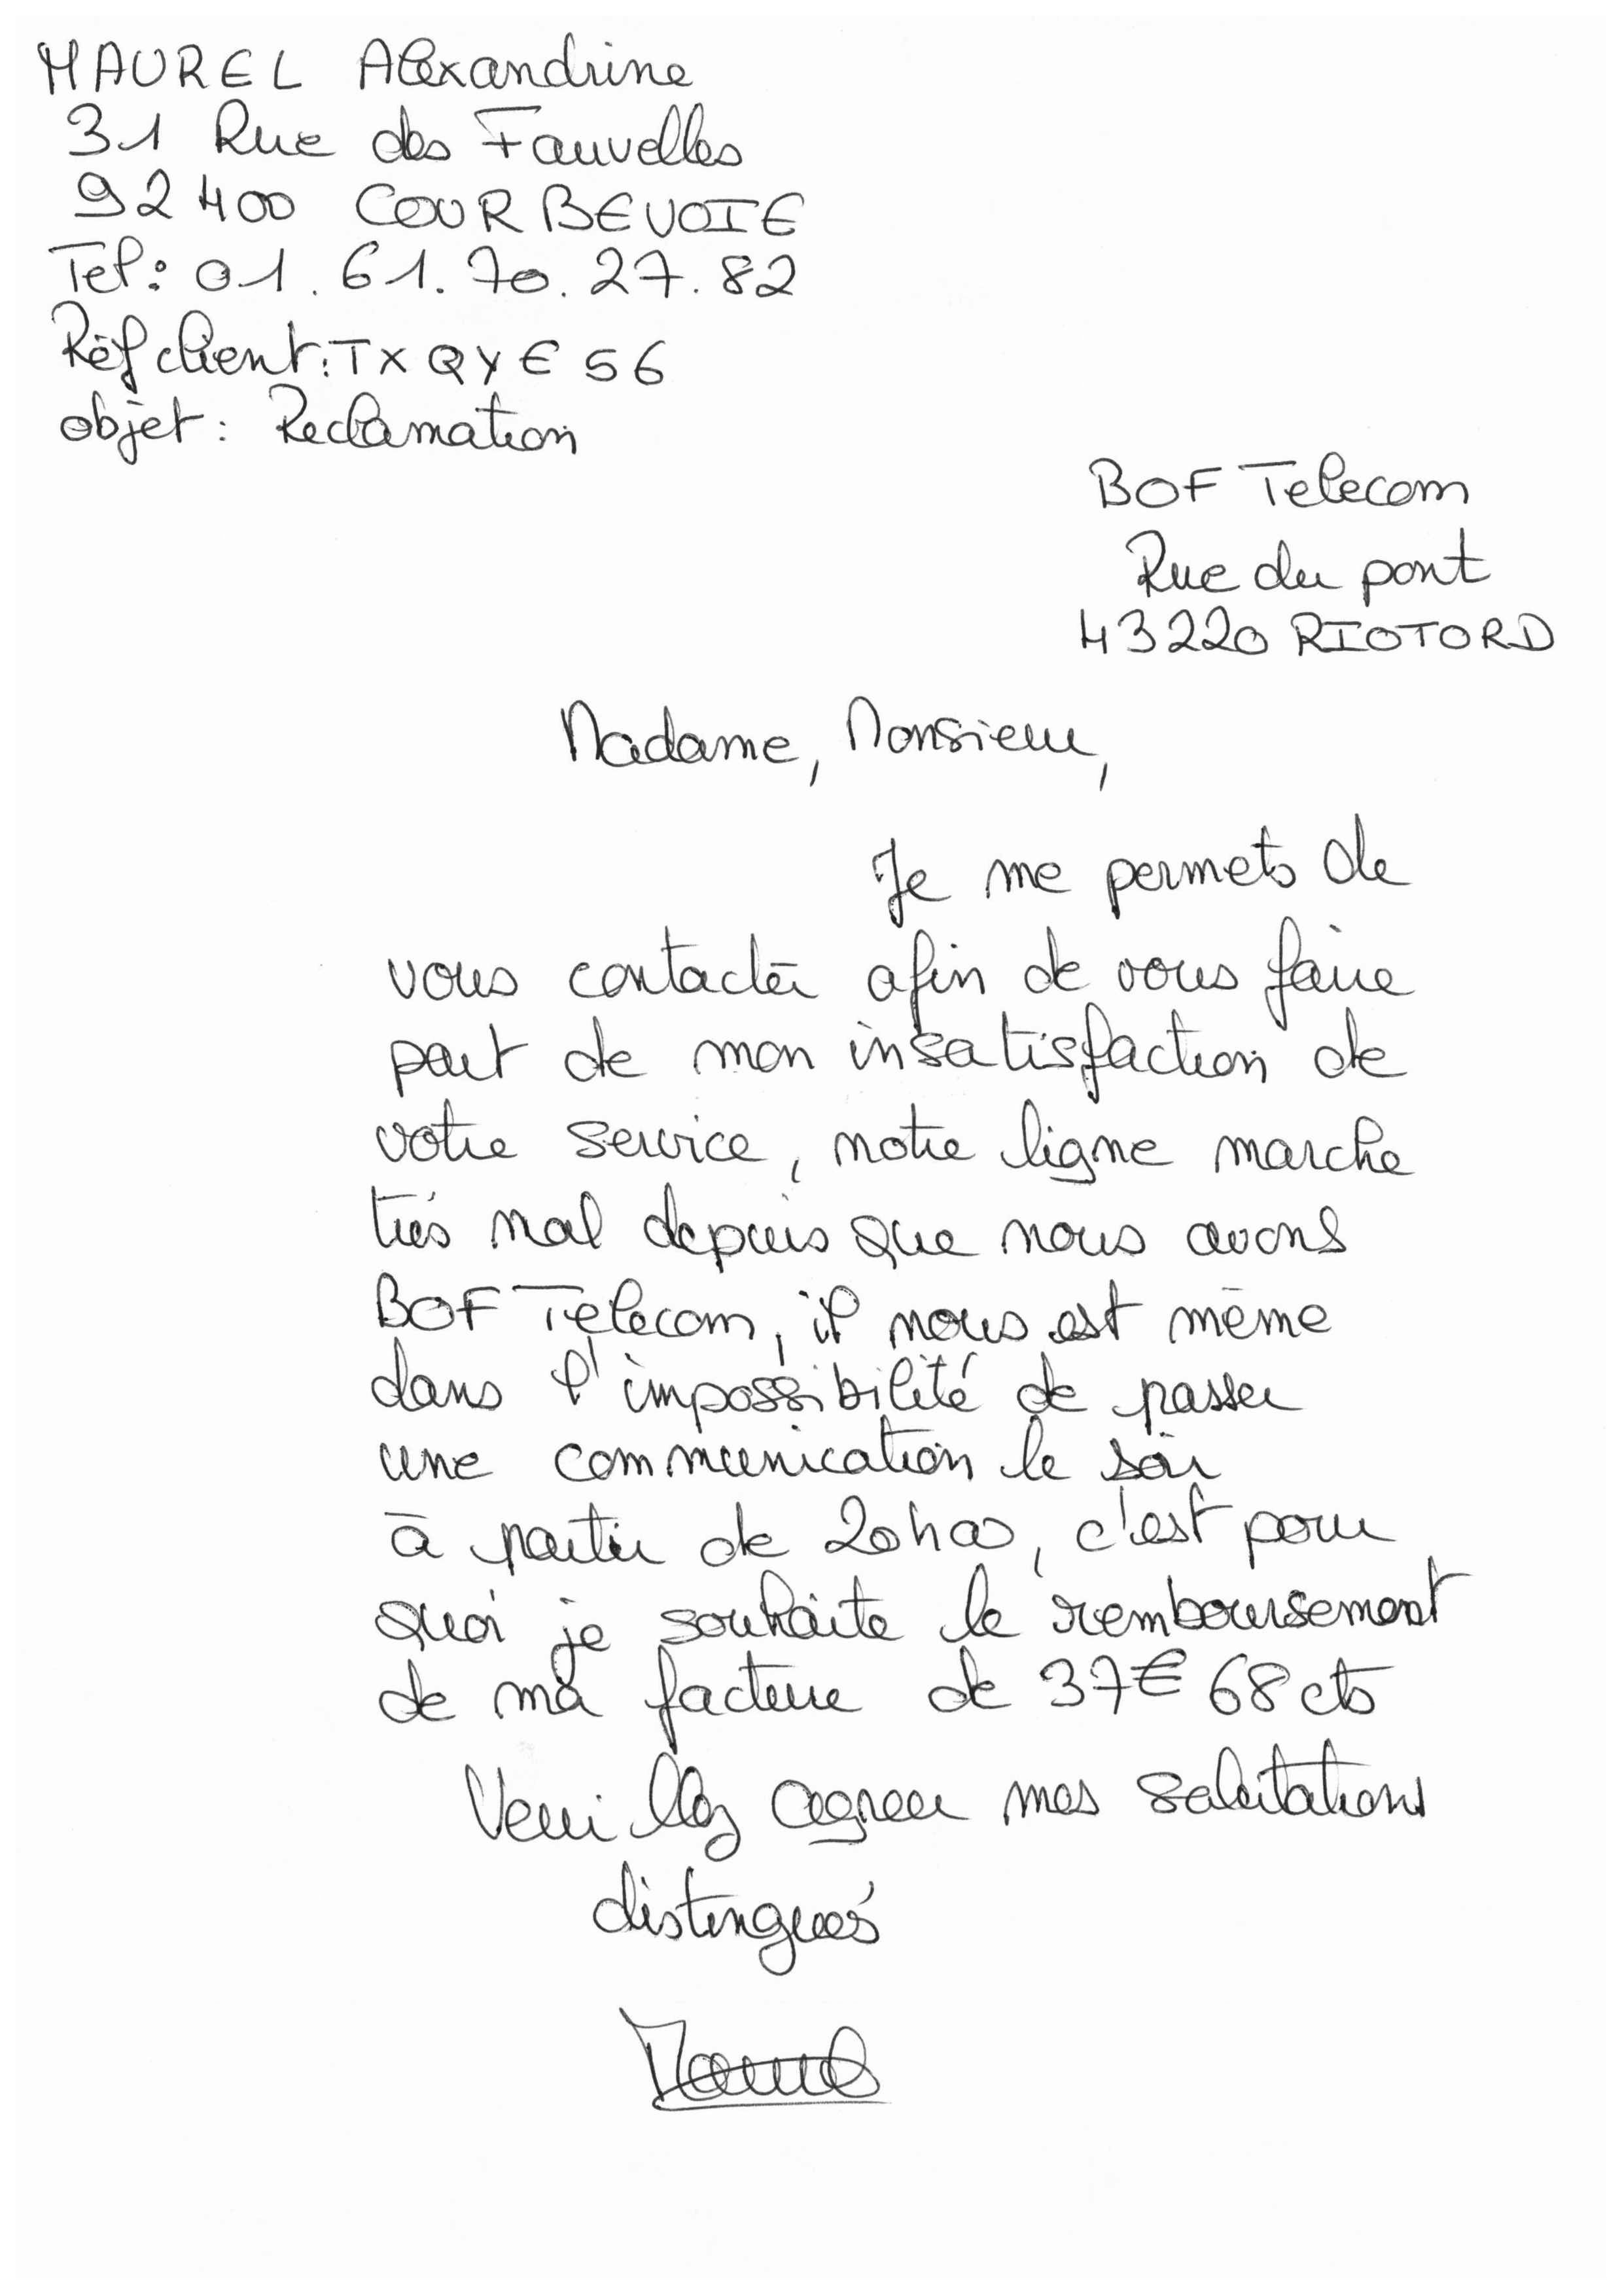 MAUREL Alexandrine
31 Rue des Fauvelles
92400 COURBEVOIE
Tel: 01.61.70.27.82
Réf client: TXQYE56
objet: Reclamation
BOF Telecom
Rue du pont
43220 RIOTORD
Madame, Monsieur,
Je me permets de
vous contacter afin de vous faire
part de mon insatisfaction de
votre service, notre ligne marche
très mal depuis que nous avons
BOF Telecom, il nous est même
dans l'impossibilité de passer
une communication le soir
à partir de 20h00, c'est pour
quoi je souhaite le remboursement
de ma facture de 37€ 68 cts
Veuillez agreer mes salutations
distingués
Maurel